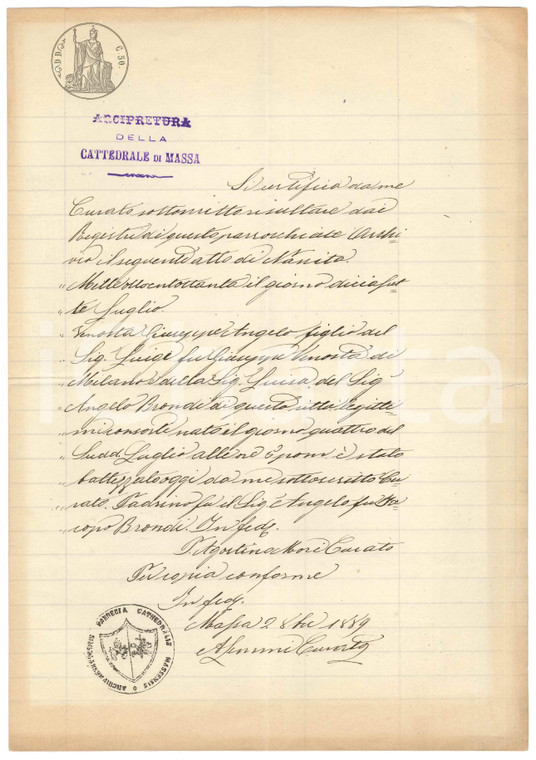 C. 50.
ARCIPRETURA
DELLA
CATTEDRALE DI MASSA
Si certifica da me
Curato sottoscritto risultare dai
Registri di questo parrocchiale Archi
vio il seguente atto di Nascita
„ Mille ottocentottanta il giorno diciaset
„ te Luglio.
„ Venosta Giuseppe Angelo figlio del
„ Sig. Luigi fu Giuseppe Venosta di
„ Milano e della Sig.ª Luisa del Sig.
„ Angelo Brondi di questa città legitti
„ mi consorti nato il giorno quattro del
„ Sudd. Luglio alle ore 6 pom. è stato
„ battezzato oggi da me sottoscritto Cu
„ rato. Padrino fu il Sig. Angelo fu
„ copo Brondi. In fede.
Agostino Mori Curato
Per copia conforme
In fede.
Massa 2 8bre 1889
Curato
PARŒCIA CATHEDRALIS MASSENSIS